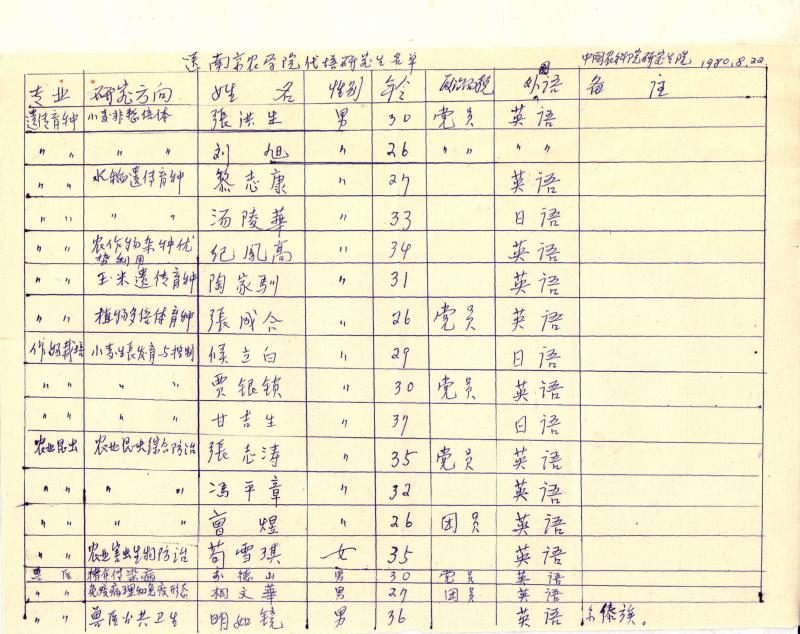 送南京农学院代培研究生名单 中国农科院研究生院 1980.8.22
专业 研究方向 姓名 性别 年令 政治面貌 外国语 备注
遗传育种 小麦非整倍体 張洪生 男 30 党员 英语
〃 〃 〃 〃 刘旭 〃 26 〃 〃 〃 〃
〃 〃 水稻遗传育种 黎志康 〃 27 英语
〃 〃 〃 〃 汤陵華 〃 33 日语
〃 〃 农作物杂种优势利用 纪凤高 〃 34 英语
〃 〃 玉米遗传育种 陶家驯 〃 31 英语
〃 〃 植物多倍体育种 張成合 〃 26 党员 英语
作物栽培 小麦生长发育与控制 候立白 〃 29 日语
〃 〃 〃 〃 贾银锁 〃 30 党员 英语
〃 〃 〃 〃 甘吉生 〃 37 日语
农业昆虫 农业昆虫综合防治 張志涛 〃 35 党员 英语
〃 〃 〃 〃 冯平章 〃 32 英语
〃 〃 〃 〃 曾煜 〃 26 团员 英语
〃 〃 农业害虫生物防治 苟雪琪 女 35 英语
兽医 传染病 德山 男 30 党员 英语
〃 〃 免疫病理和免疫形态 相文華 男 27 团员 英语
〃 〃 兽医公共卫生 明如镜 男 36 英语 系傣族。